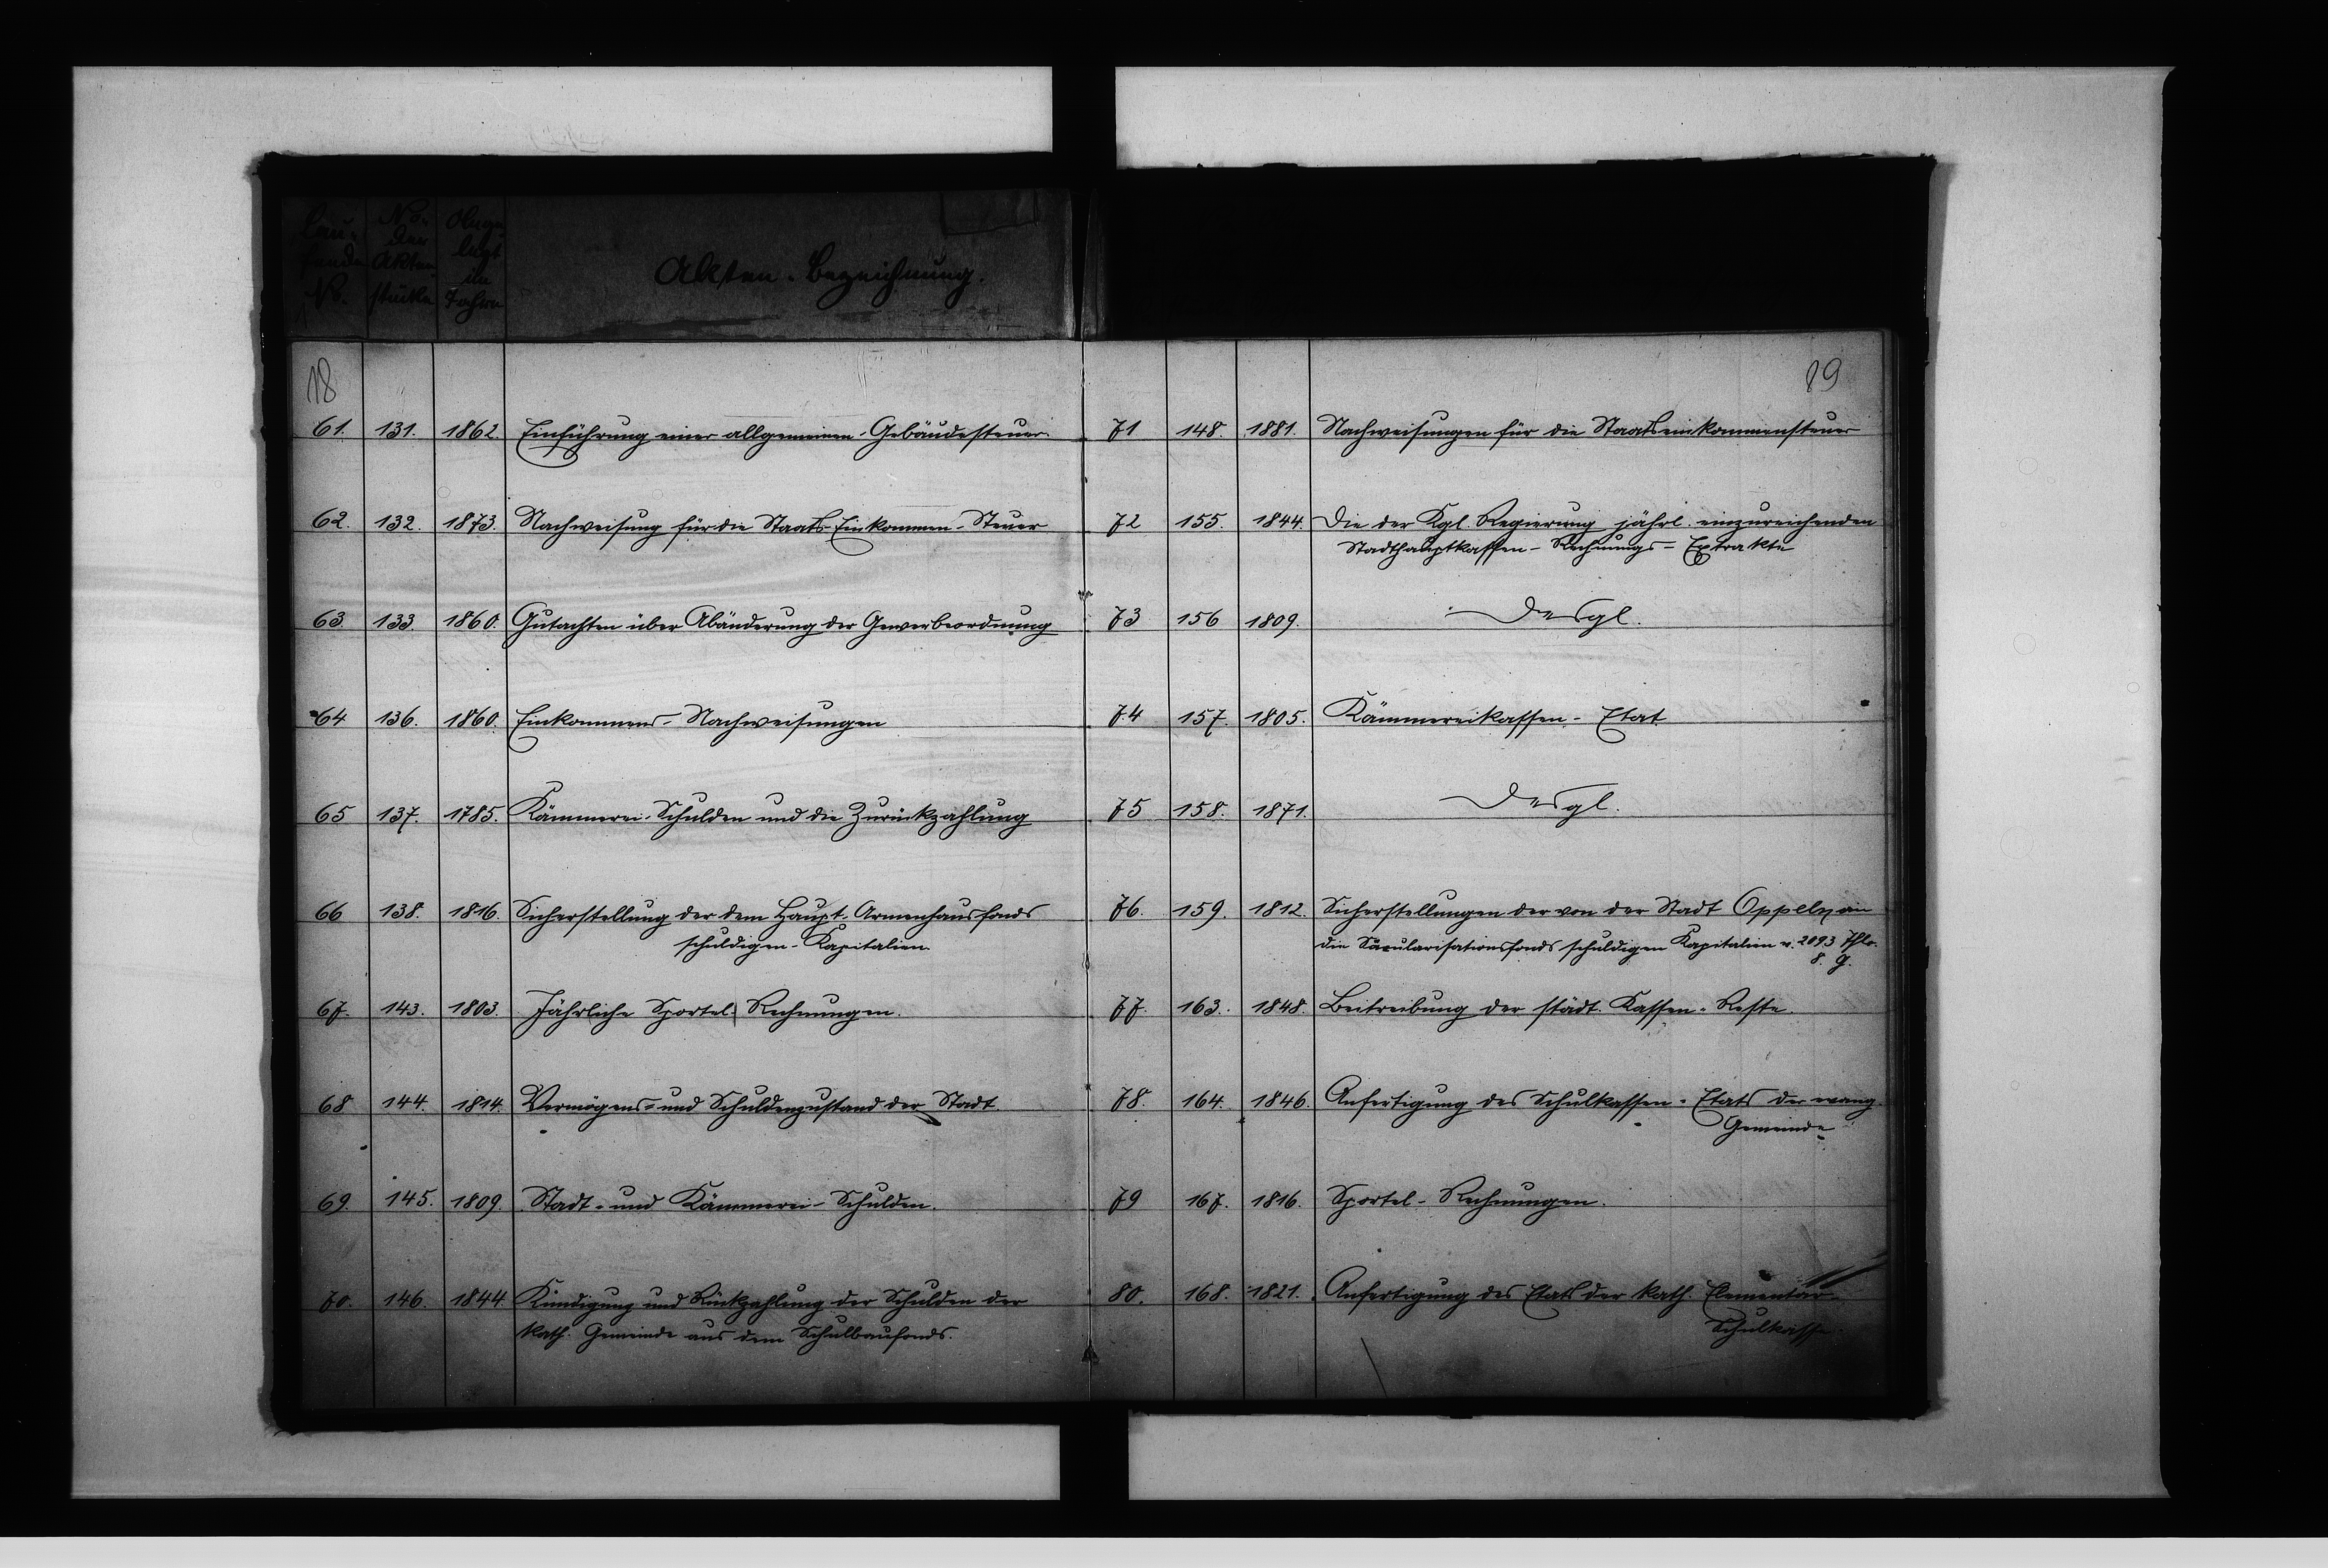 Lau-
fende
No.
No.
der
Akten-
stücke
Ange-
legt
im
Jahre
Akten-Bezeichnung.
18
61. 131. 1862. Einführung einer allgemeinen Gebäudesteuer.
62. 132. 1873. Nachweisung für die Staats-Einkommen-Steuer
63. 133. 1860. Gutachten über Abänderung der Gewerbeordnung
64 136. 1860. Einkommens-Nachweisungen
65 137. 1785. Kämmerei-Schulden und die Zurückzahlung
66 138. 1816. Sicherstellung der dem Haupt-Armenhausfonds
schuldigen-Kapitalien.
67. 143. 1803. Jährliche Sportel Rechnungen.
68 144. 1814. Vermögens- und Schuldenzustand der Stadt
69. 145. 1809. Stadt- und Kämmerei-Schulden.
70. 146. 1844. Kündigung und Rückzahlung der Schulden der
kath. Gemeinde aus dem Schulbaufonds.
19
71 148. 1881. Nachweisungen für die Staatseinkommensteuer
72 155. 1844. Die der Kgl. Regierung jährl. einzureichenden
Stadthauptkassen-Rechnungs-Extrakte
73 156 1809. Desgl.
74 157. 1805. Kämmereikassen-Etat
75 158. 1871. Desgl.
76. 159. 1812. Sicherstellungen der von der Stadt Oppeln an
die Säcularisationsfonds schuldigen Kapitalien v. 2093 Thlr.
8. g.
77. 163. 1848. Beitreibung der städt. Kassen-Reste.
78. 164. 1846. Anfertigung des Schulkassen-Etats der evang.
Gemeinde
79 167. 1816. Sportel-Rechnungen.
80. 168. 1821. Anfertigung des Etats der kath. Elementar-
Schulkasse.